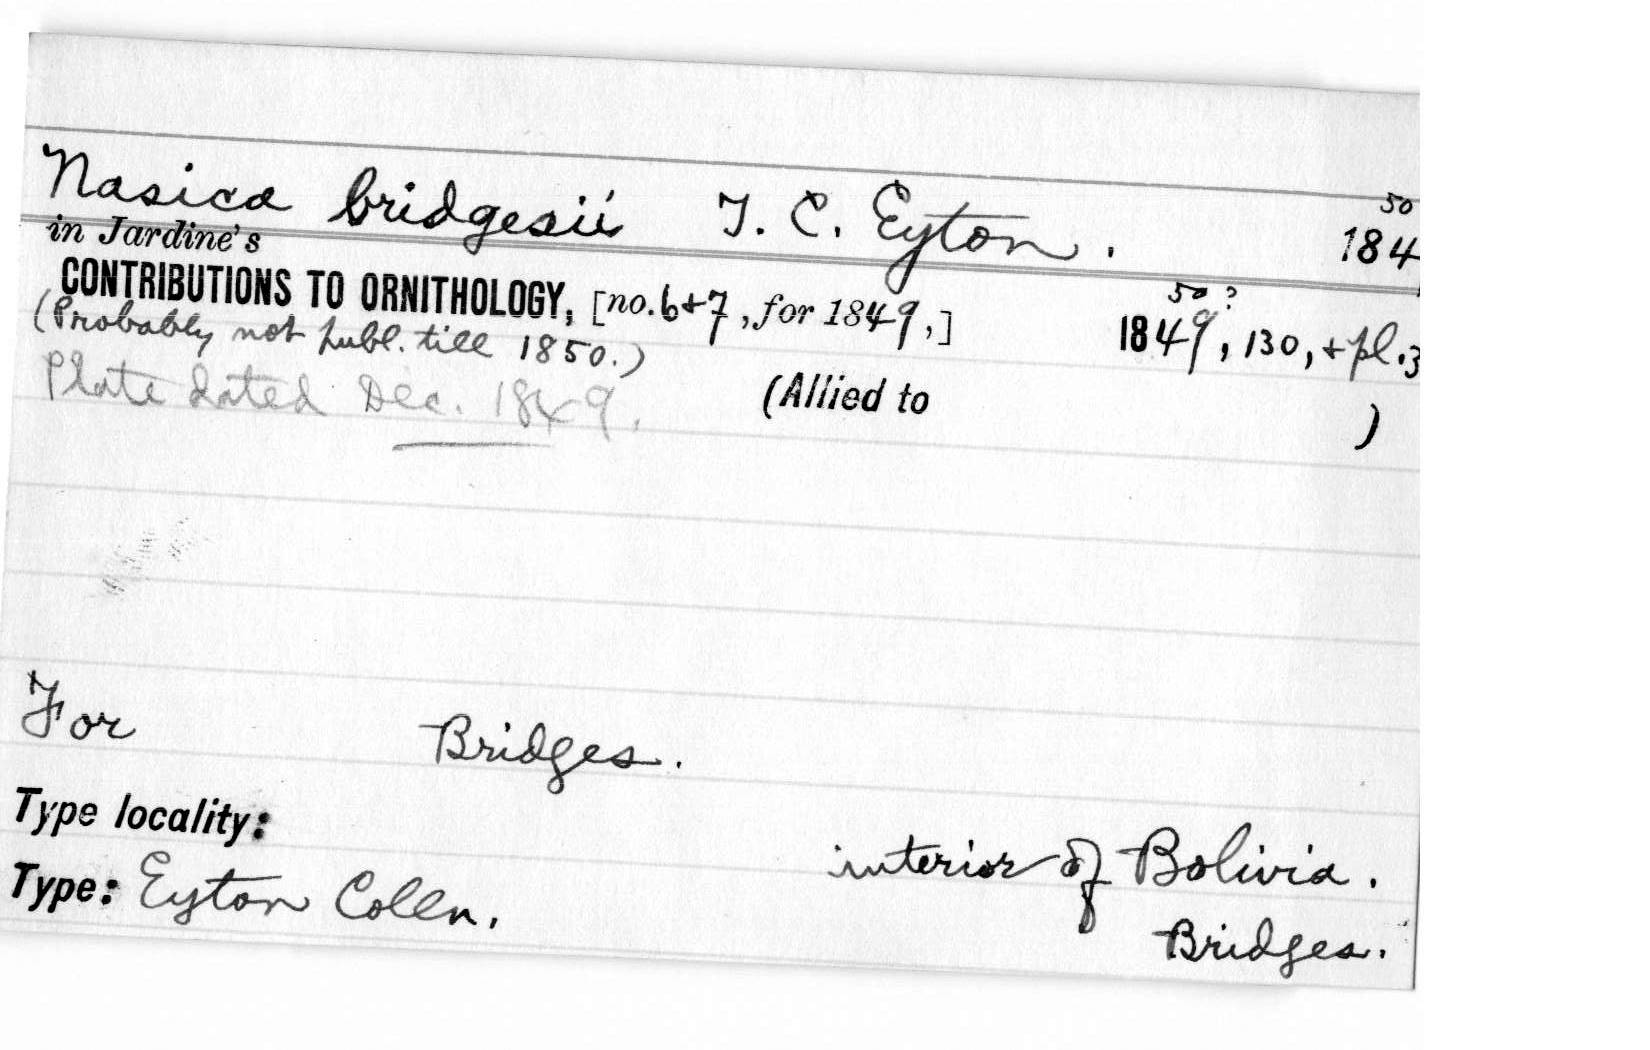 50
Nasica bridgesii T. C. Eyton. 184
in Jardine's
CONTRIBUTIONS TO ORNITHOLOGY, [no. 6+7, for 1849,] 1849, 130, + pl. 3
50 ?
(Probably not publ. till 1850.)
Plate dated Dec. 1849. (Allied to )
For Bridges.
Type locality:
interior of Bolivia.
Type: Eyton Colln.
Bridges.